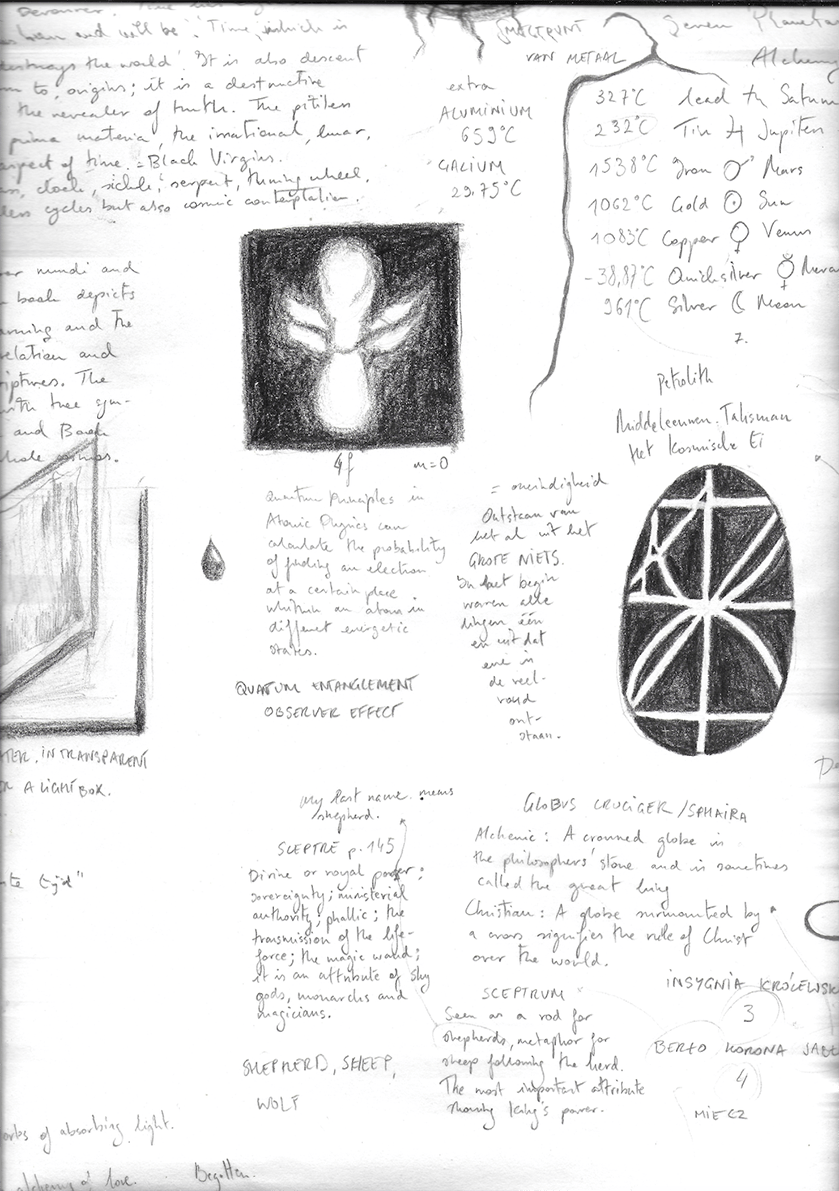 Devourer. Time
been and will be'. 'Time, which is
destroys the world'. It is also descent
to, origins; it is a destructive
the revealer of truth. The pitiless
prima materia, the irrational, lunar,
aspect of time. = Black Virgins.
clock, sickle, serpent, turning wheel.
cycles but also cosmic contemplation.
SMELTPUNT
VAN METAAL
extra
ALUMINIUM
659°C
GALIUM
29,75°C
Seven Planetar
Alchemy
327°C lead ♄ Saturn
232°C Tin ♃ Jupiter
1538°C Iron ♂ Mars
1062°C Gold ☉ Sun
1083°C Copper ♀ Venus
-38,87°C Quicksilver ☿ Mercu
961°C Silver ☾ Moon
7.
mundi and
book depicts
and the
relation and
scriptures. The
with tree sym-
and Book
whole cosmos.
4f m=0
Quantum Principles in
Atomic Physics can
calculate the probability
of finding an electron
at a certain place
within an atom in
different energetic
states.
QUATUM ENTANGLEMENT
OBSERVER EFFECT
= oneindigheid
Ontstaan van
het al uit het
GROTE NIETS.
In het begin
waren alle
dingen één
en uit dat
ene is
de veel-
voud
ont-
staan.
Petrolith
Middeleeuwen. Talisman
Het Kosmische Ei
WATER. IN TRANSPARENT
A LIGHTBOX.
Tijd"
My last name means
shepherd.
SCEPTRE p. 145
Divine or royal power;
sovereignty; ministerial
authority; phallic; the
transmission of the life-
force; the magic wand;
it is an attribute of sky
gods, monarchs and
magicians.
SHEPHERD, SHEEP,
WOLF
GLOBUS CRUCIGER / SPHAIRA
Alchemic: A crowned globe is
the philosophers' stone and is sometimes
called the great king
Christian: A globe surmounted by
a cross signifies the rule of Christ
over the world.
SCEPTRUM
Seen as a rod for
shepherds, metaphor for
sheep following the herd.
The most important attribute
showing king's power.
INSYGNIA KRÓLEWSK
3
BERŁO KORONA JABŁ
4
MIECZ
works of absorbing light.
alchemy of love. Begotten.